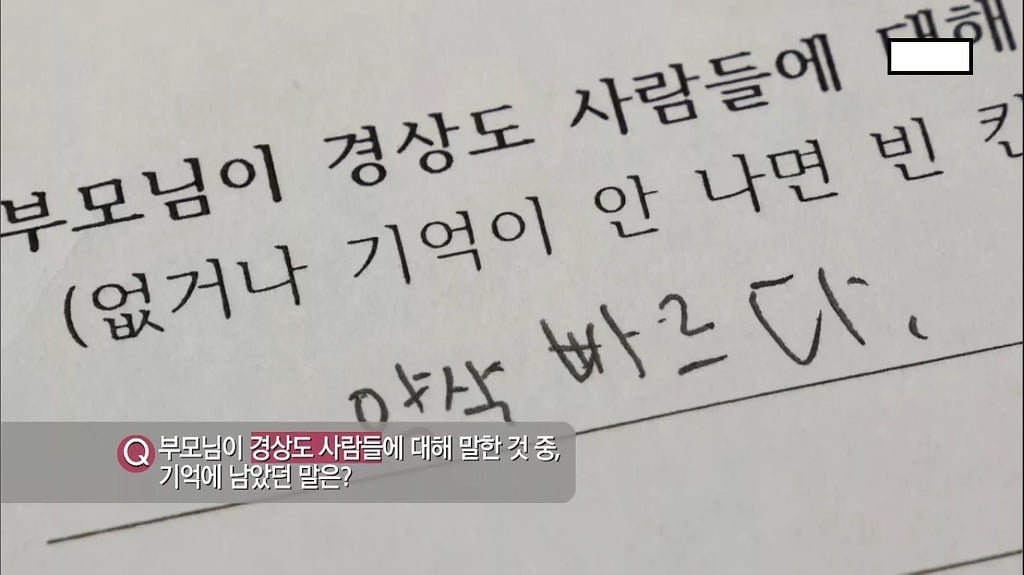 부모님이 경상도 사람들에 대해
(없거나 기억이 안 나면 빈
약삭 빠르다.
Q 부모님이 경상도 사람들에 대해 말한 것 중,
기억에 남았던 말은?